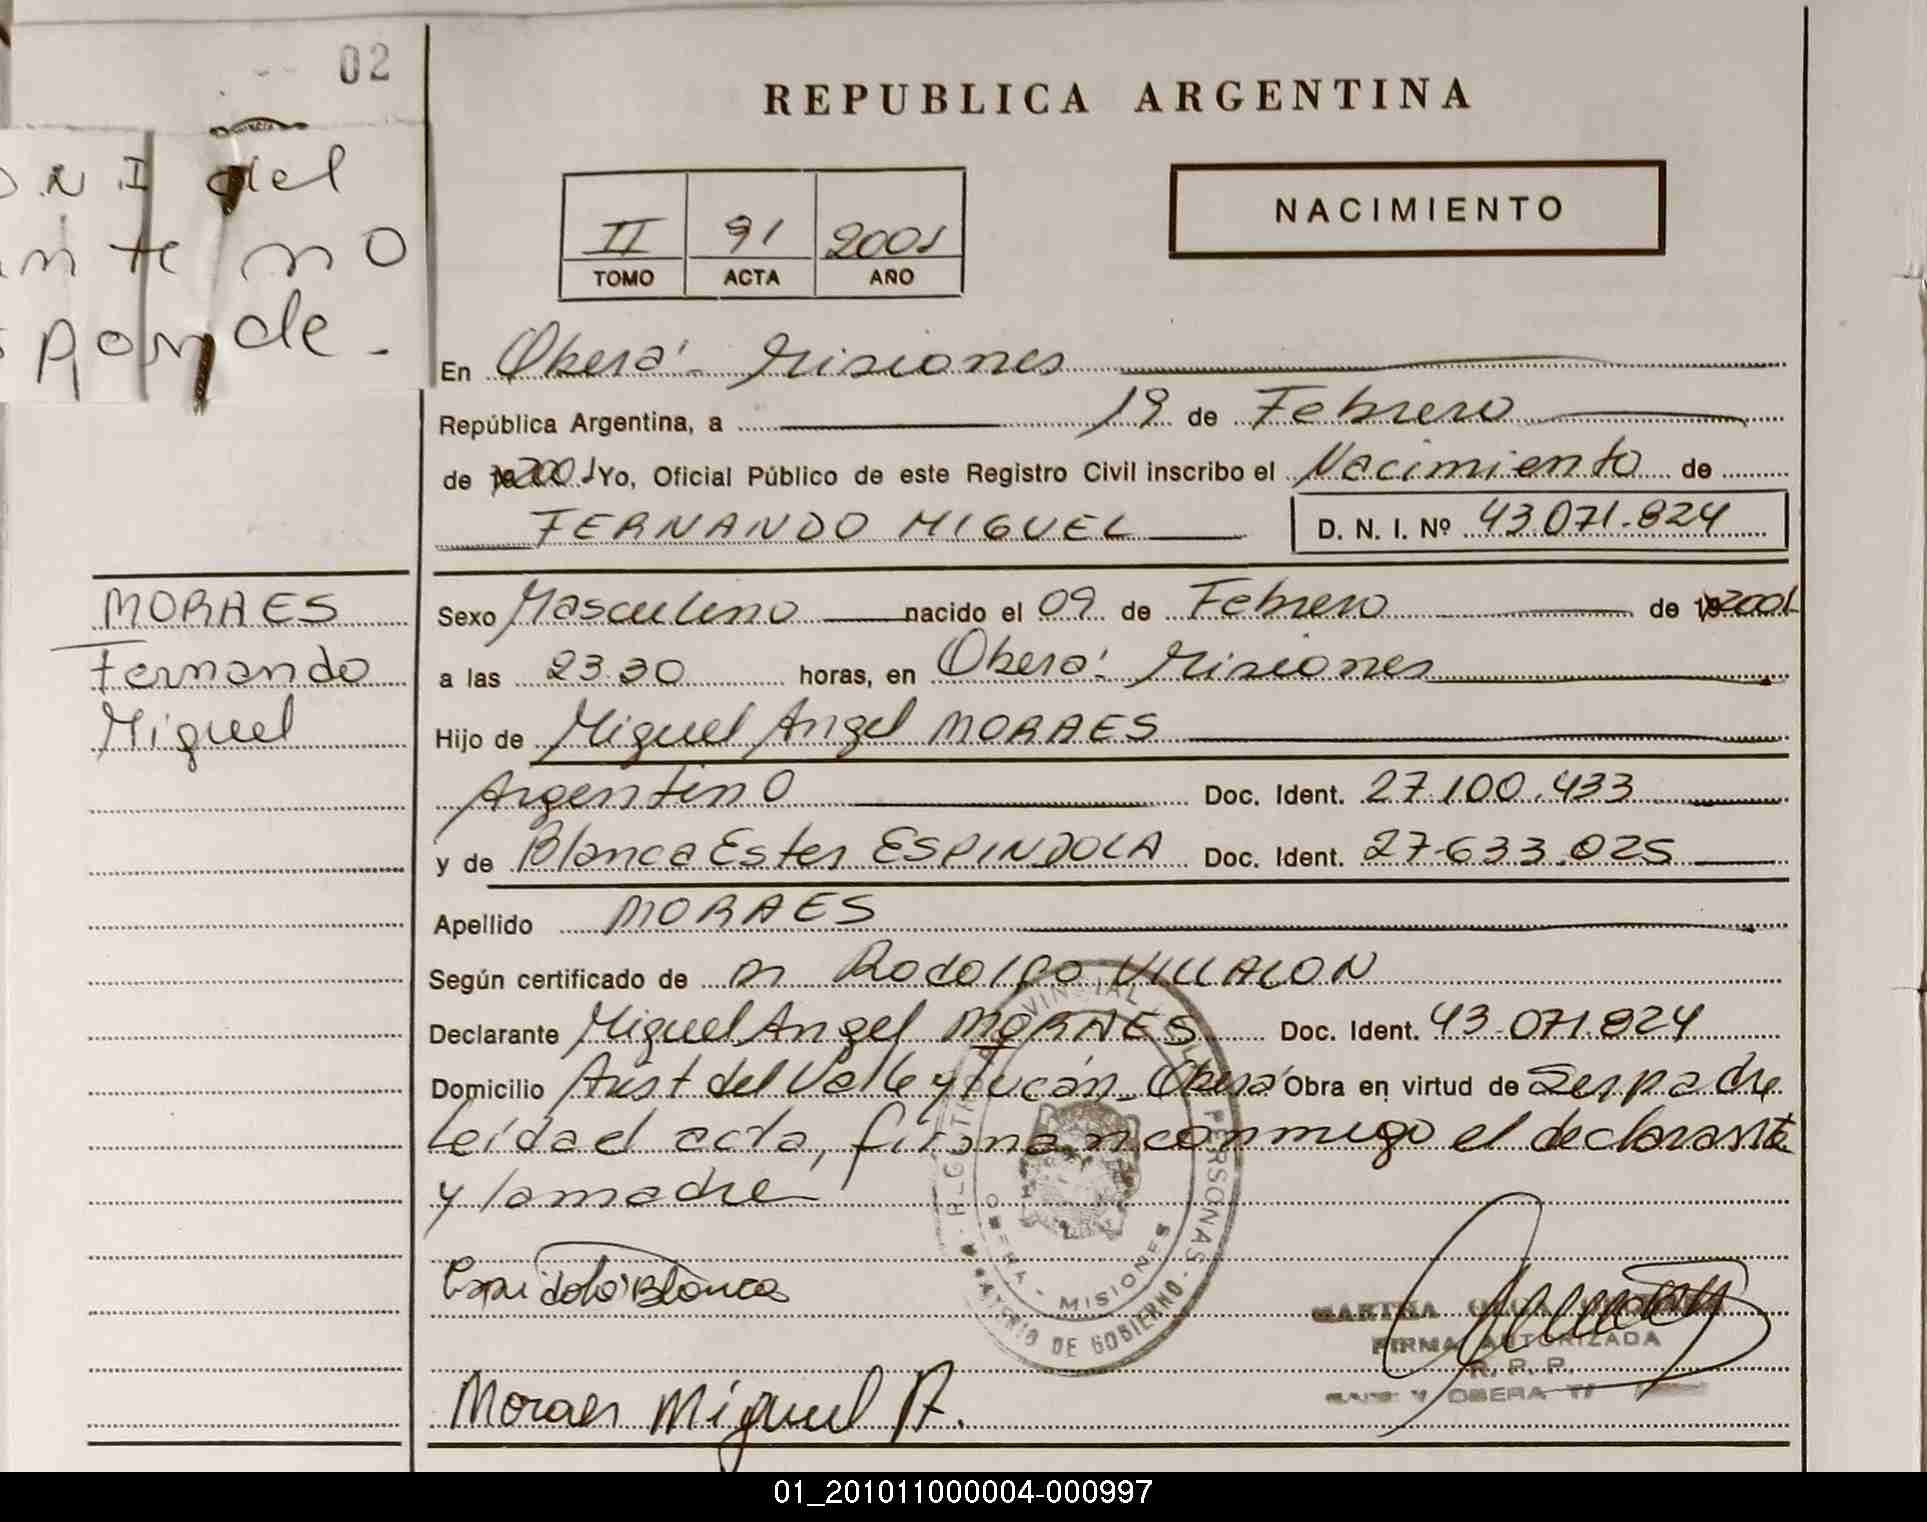 02
D N I del
nte no
sponde.
REPUBLICA ARGENTINA
II 91 2001
TOMO ACTA AÑO
NACIMIENTO
En Oberá - Misiones
República Argentina, a 19 de Febrero
de 2001 Yo, Oficial Público de este Registro Civil inscribo el Nacimiento de
FERNANDO MIGUEL D. N. I. Nº 43.071.824
MORAES
Fernando
Miguel
Sexo Masculino nacido el 09 de Febrero de 2001
a las 23.30 horas, en Oberá - Misiones
Hijo de Miguel Angel MORAES
Argentino Doc. Ident. 27.100.433
y de Blanca Ester ESPINDOLA Doc. Ident. 27.633.025
Apellido MORAES
Según certificado de Rodolfo VILLALON
Declarante Miguel Angel MORAES Doc. Ident. 43.071.824
Domicilio Arist del Valle y Tucán - Oberá Obra en virtud de Ser padre
Leída el acta, firman conmigo el declarante
y la madre
OBERA - MISIONES
PERSONAS
DE GOBIERNO
Espidola Blanca
MARTHA
FIRMA AUTORIZADA
R. P. P.
OBERA
Moraes Miguel A.
01_201011000004-000997